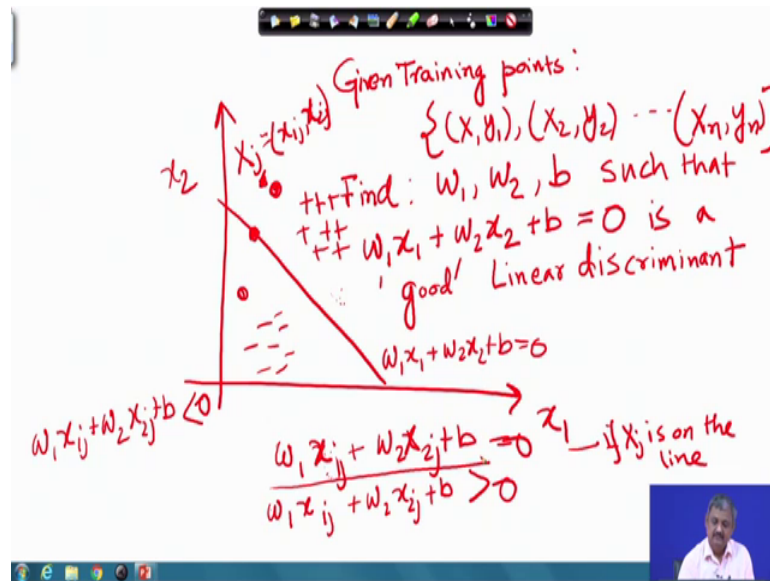 Given Training points:
{(X,y₁), (X₂,y₂) ⋯ (Xₙ,yₙ)}
Xj=(x₁j,x₂j)
x₂
Find: ω₁, ω₂, b such that
ω₁x₁+ω₂x₂+b=0 is a
'good' Linear discriminant
ω₁x₁+ω₂x₂+b=0
x₁
ω₁x₁j+ω₂x₂j+b<0
ω₁x₁j+ω₂x₂j+b=0 — if Xj is on the
line
ω₁x₁j+ω₂x₂j+b>0